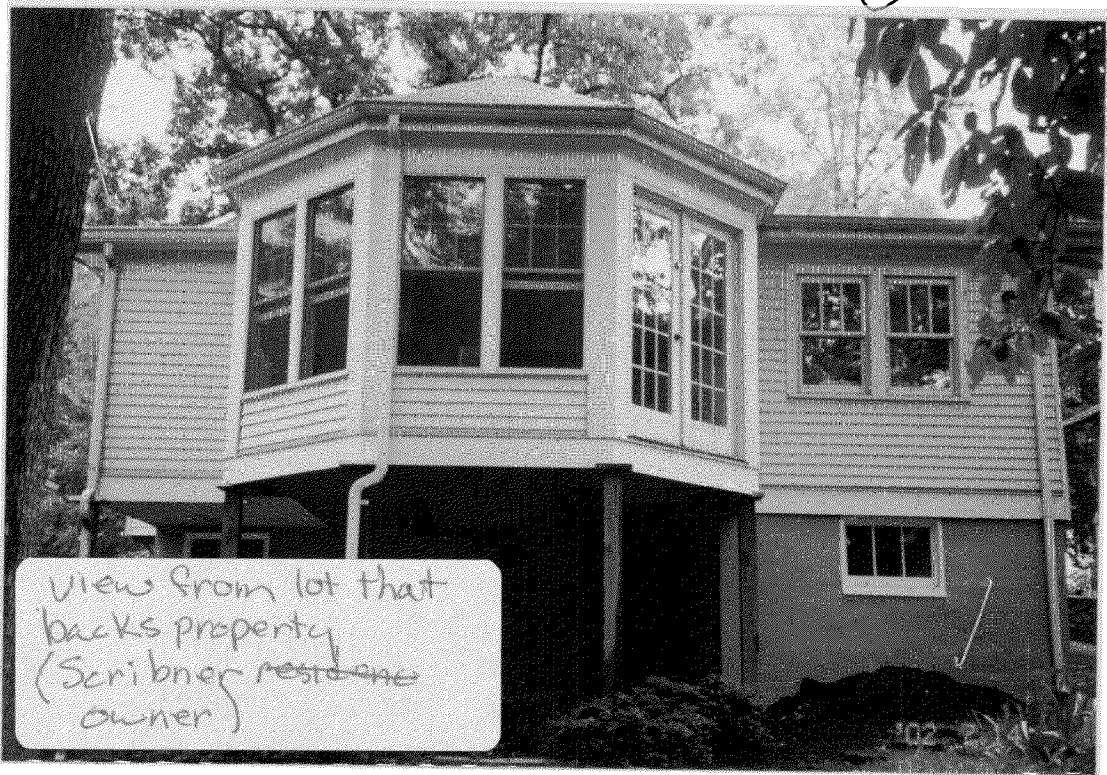 view from lot that
backs property
(Scribner residence
owner)
'02 2 14